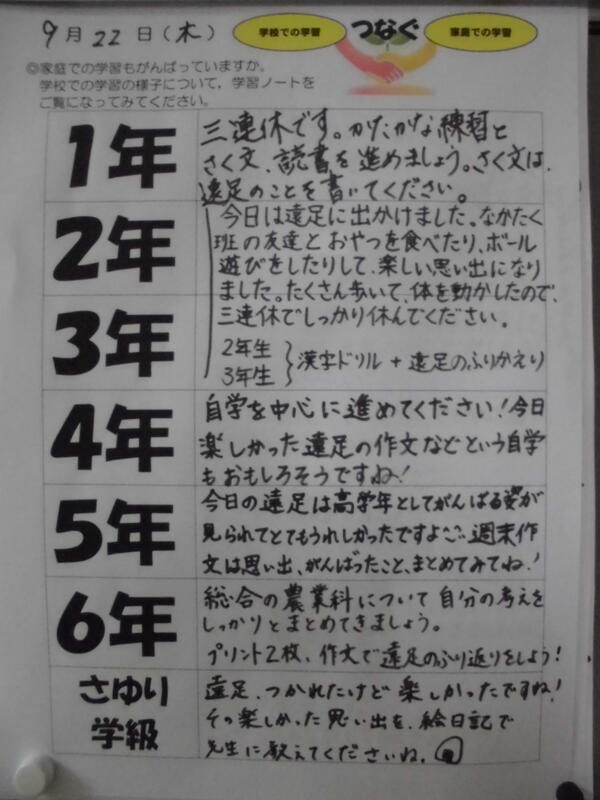 9月22日(木)
学校での学習 つなぐ 家庭での学習
◎家庭での学習もがんばっていますか。
学校での学習の様子について，学習ノートを
ご覧になってみてください。
1年
三連休です。かたかな練習と
さく文、読書を進めましょう。さく文は、
遠足のことを書いてください。
2年
3年
今日は遠足に出かけました。なかたく
班の友達とおやつを食べたり、ボール
遊びをしたりして、楽しい思い出になり
ました。たくさん歩いて、体を動かしたので、
三連休でしっかり休んでください。
2年生
3年生
漢字ドリル + 遠足のふりかえり
4年
自学を中心に進めてください！今日
楽しかった遠足の作文などという自学
もおもしろそうですね！
5年
今日の遠足は高学年としてがんばる姿が
見られてとてもうれしかったですよ。週末作
文は思い出、がんばったこと、まとめてみてね！
6年
総合の農業科について自分の考えを
しっかりとまとめてきましょう。
プリント2枚、作文で遠足のふり返りをしよう！
さゆり
学級
遠足、つかれたけど楽しかったですね！
その楽しかった思い出を、絵日記で
先生に教えてくださいね。